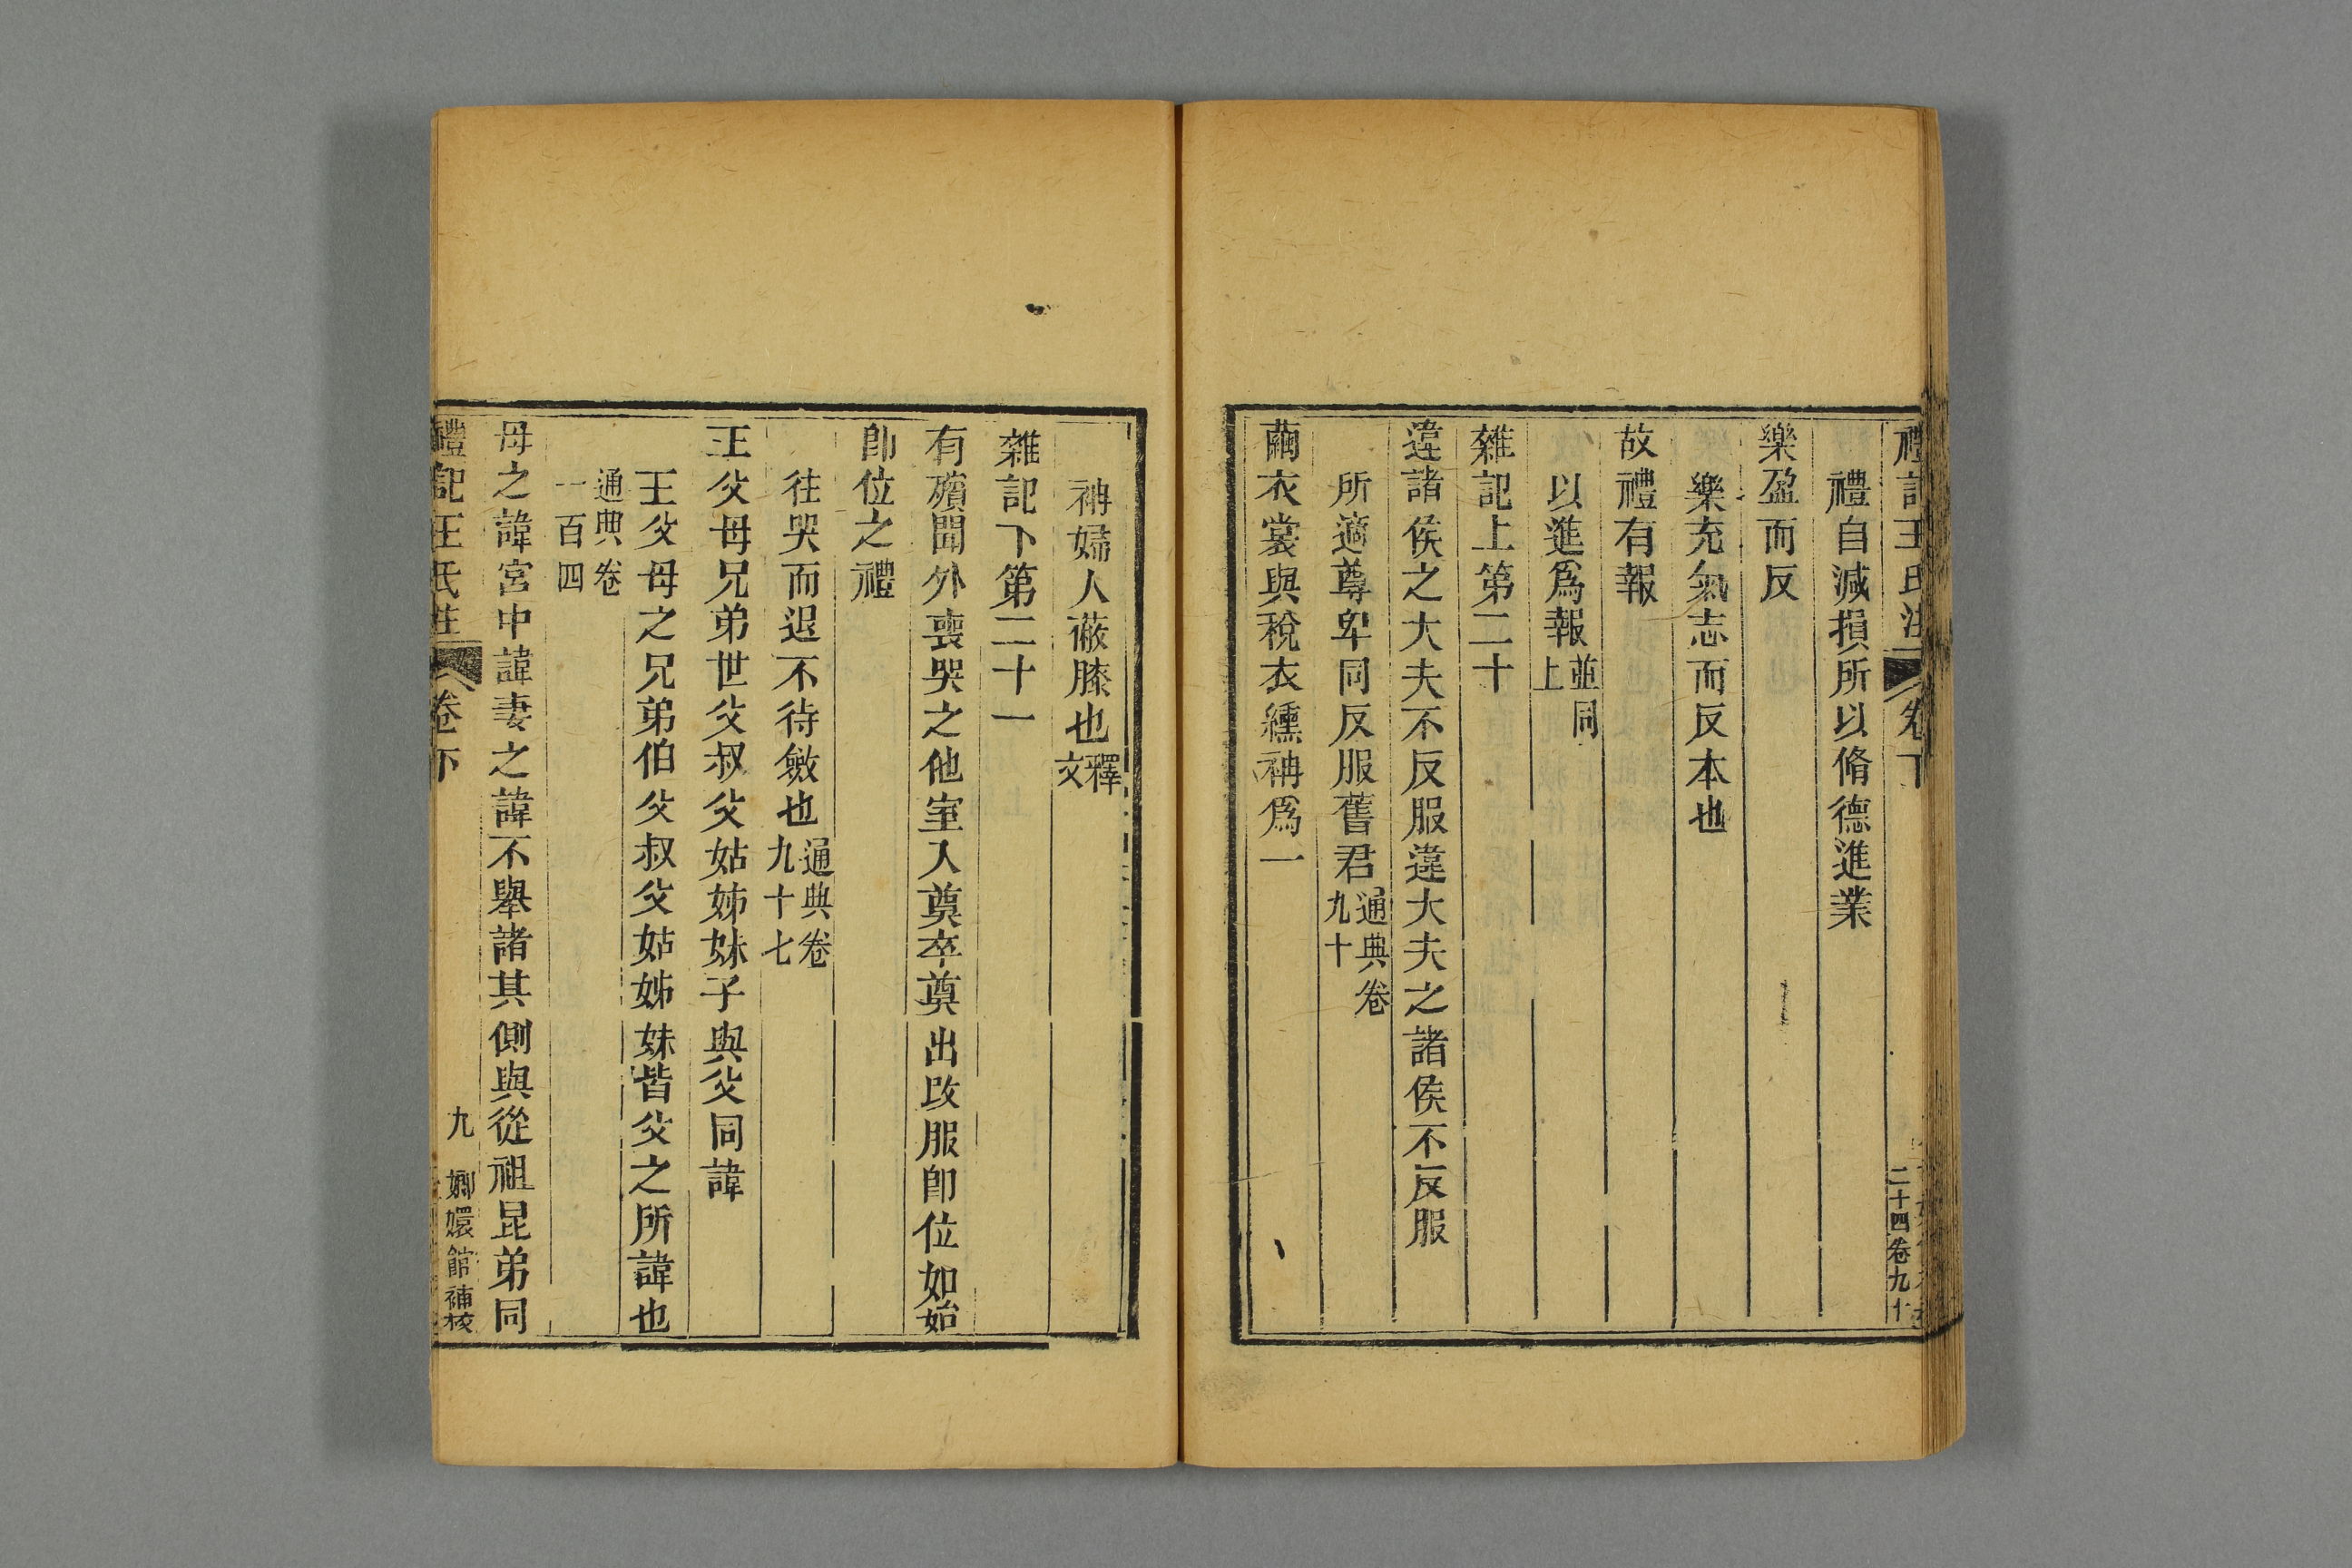 禮記王氏注 卷下
二十四卷九十
禮自減損所以脩德進業
樂盈而反
樂充氣志而反本也
故禮有報
以進爲報並同上
雜記上第二十
違諸侯之大夫不反服違大夫之諸侯不反服
所適尊卑同反服舊君通典卷九十
繭衣裳與稅衣纁袡爲一
袡婦人蔽膝也釋文
雜記下第二十一
有殯聞外喪哭之他室入奠卒奠出改服卽位如始
卽位之禮
往哭而退不待斂也通典卷九十七
王父母兄弟世父叔父姑姊妹子與父同諱
王父母之兄弟伯父叔父姑姊妹皆父之所諱也
通典卷一百四
母之諱宮中諱妻之諱不舉諸其側與從祖昆弟同
禮記王氏注 卷下 九 嫏嬛館補校